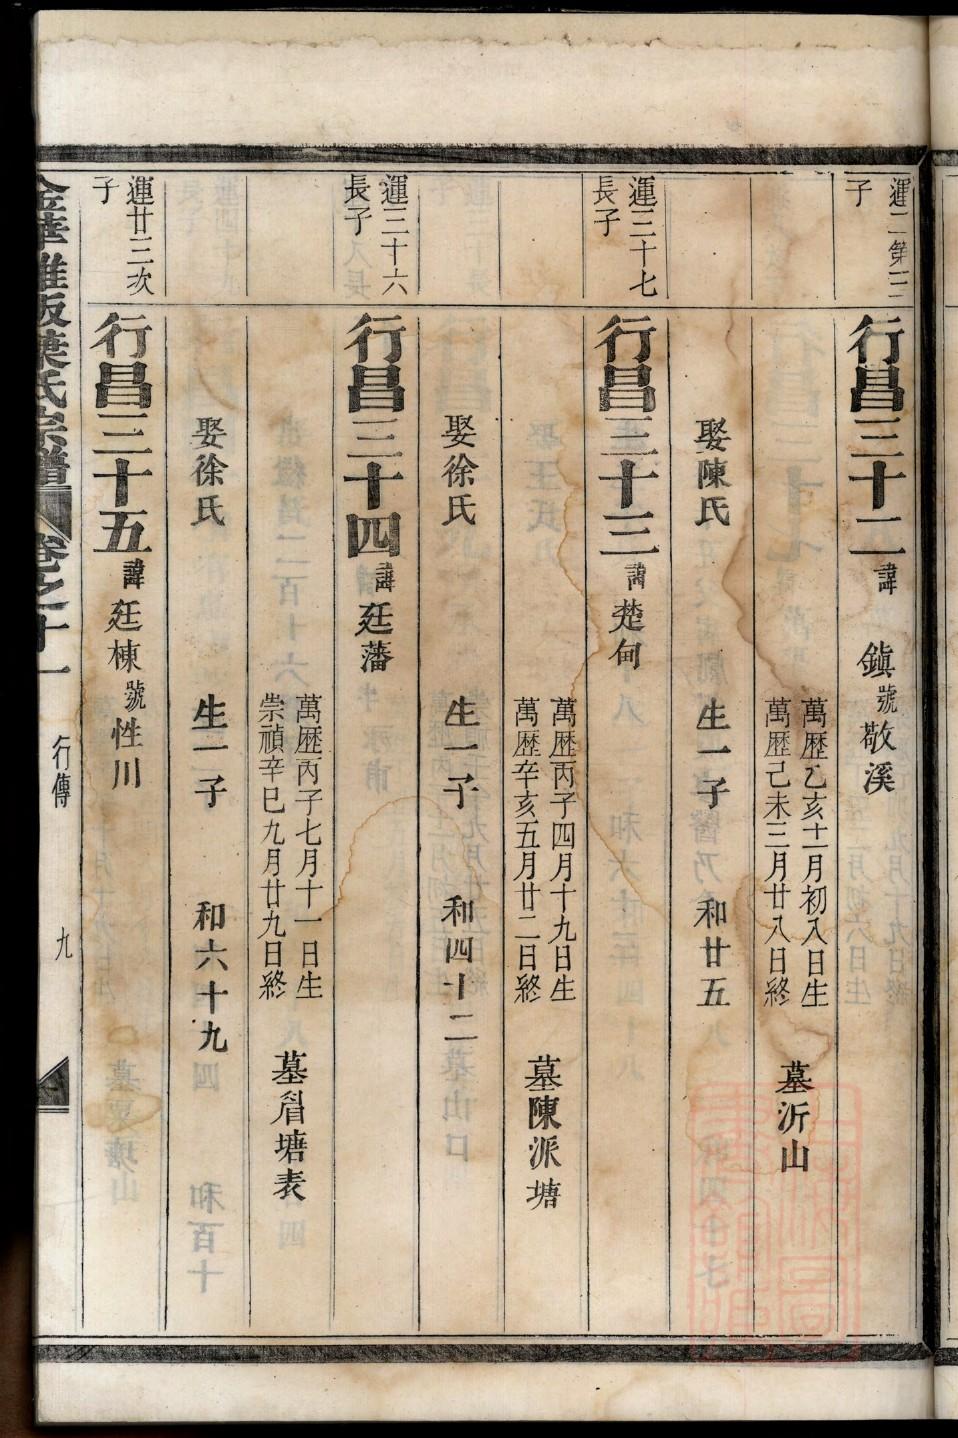 運二第三
子
行昌三十二 諱 鎮 號 敬溪
萬歷乙亥十二月初八日生
萬歷己未三月廿八日終
墓沂山
娶陳氏 生一子 和廿五
運三十七
長子
行昌三十三 諱 楚甸
萬歷丙子四月十九日生
萬歷辛亥五月廿二日終
墓陳派塘
娶徐氏 生一子 和四十二
運三十六
長子
行昌三十四 諱 廷藩
萬歷丙子七月十一日生
崇禎辛巳九月廿九日終
墓眉塘表
娶徐氏 生一子 和六十九
運廿三次
子
行昌三十五 諱 廷棟 號 性川
葉氏宗譜 卷之十一 行傳 九